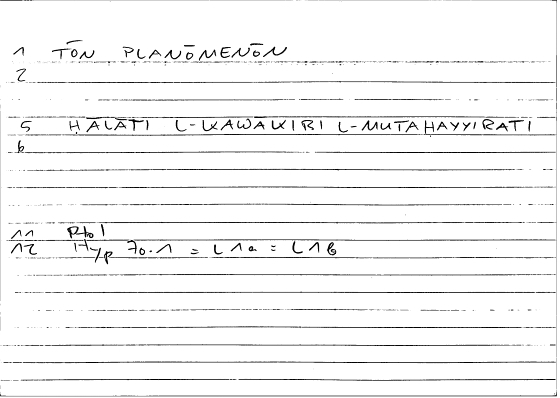 1 TŌN PLANŌMENŌN
2
5 ḤĀLĀTI L-KAWĀKIBI L-MUTAḤAYYIRATI
6
11 Ptol
12 Hyp 70.1 = L1a = L1b